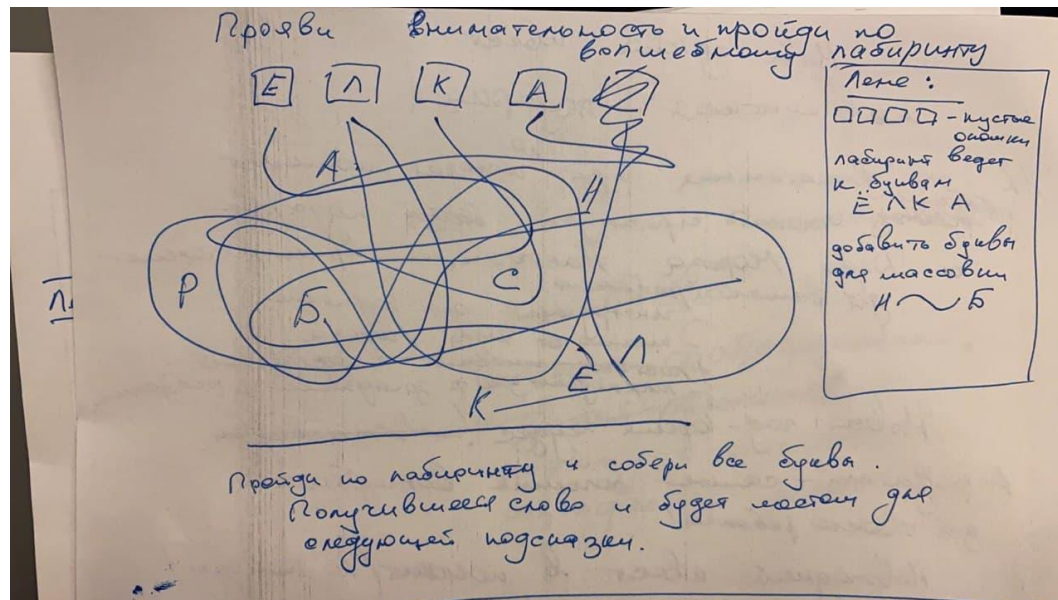 Прояви внимательность и пройди по
волшебному лабиринту
Е Л К А
Лене:
- пустые
окошки
лабиринт ведет
к буквам
Ё Л К А
добавить буквы
для массовки
Н Б
А
Н
Р
С
Б
Л
Е
К
Пройди по лабиринту и собери все буквы.
Получившееся слово и будет местом для
следующей подсказки.